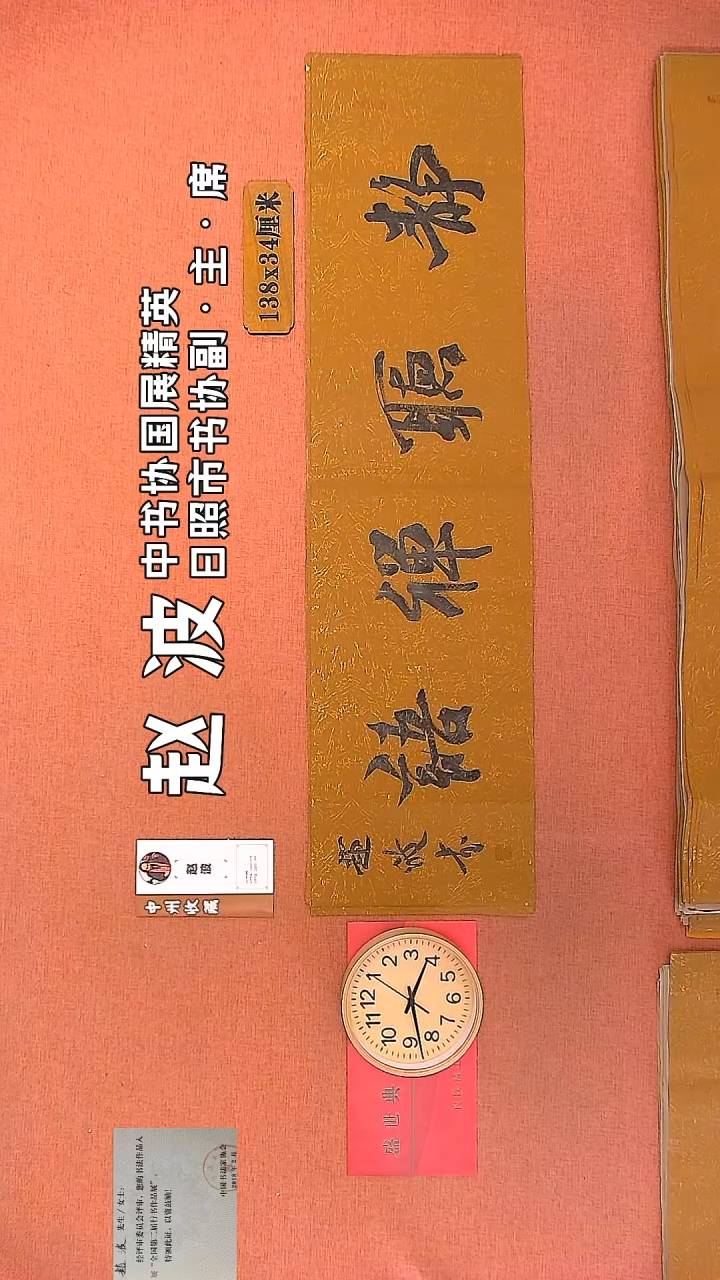 赵波
中书协国展精英
日照市书协副·主·席
138x34厘米
静聽禪語
赵波
中州收藏
12
1
2
3
4
5
6
7
8
9
10
11
盛世典
先生/女士:
经评审委员会评审,您的书法作品入
展“全国第二届行书作品展”。
特颁此证,以资鼓励!
中国书法家协会